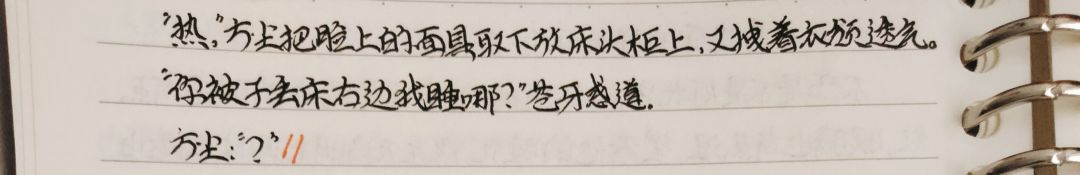 "热,"方尘把脸上的面具取下放床头柜上,又拽着衣领透气。
"你被子丢床右边我睡哪?"苍牙惑道.
方尘:"?"//